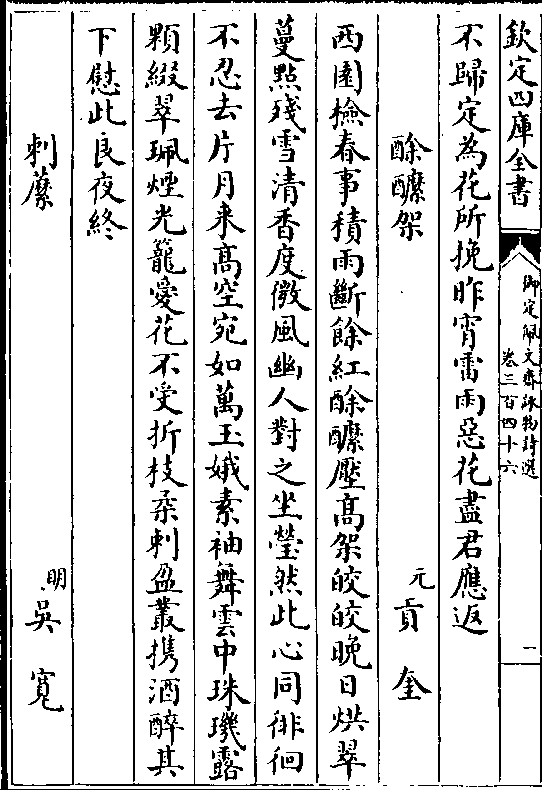 欽定四庫全書
御定佩文齋詠物詩選
卷三百四十六
一
不歸定為花所挽昨宵雷雨惡花盡君應返
酴醿架
元
貢奎
西園檢春事積雨斷餘紅酴醿壓高架皎皎晚日烘翠
蔓點殘雪清香度微風幽人對之坐瑩然此心同徘徊
不忍去片月来高空宛如萬玉娥素袖舞雲中珠璣露
顆綴翠珮煙光籠愛花不受折枝朶刺盈叢携酒醉其
下慰此良夜終
刺蘼
明
吳寛